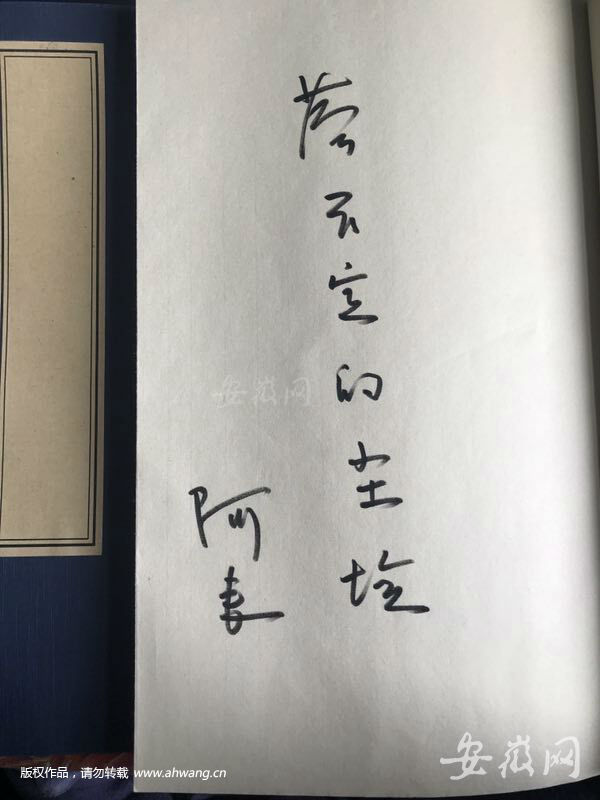 落不定的尘埃
阿来
安徽网
安徽网
版权作品，请勿转载 www.ahwang.cn